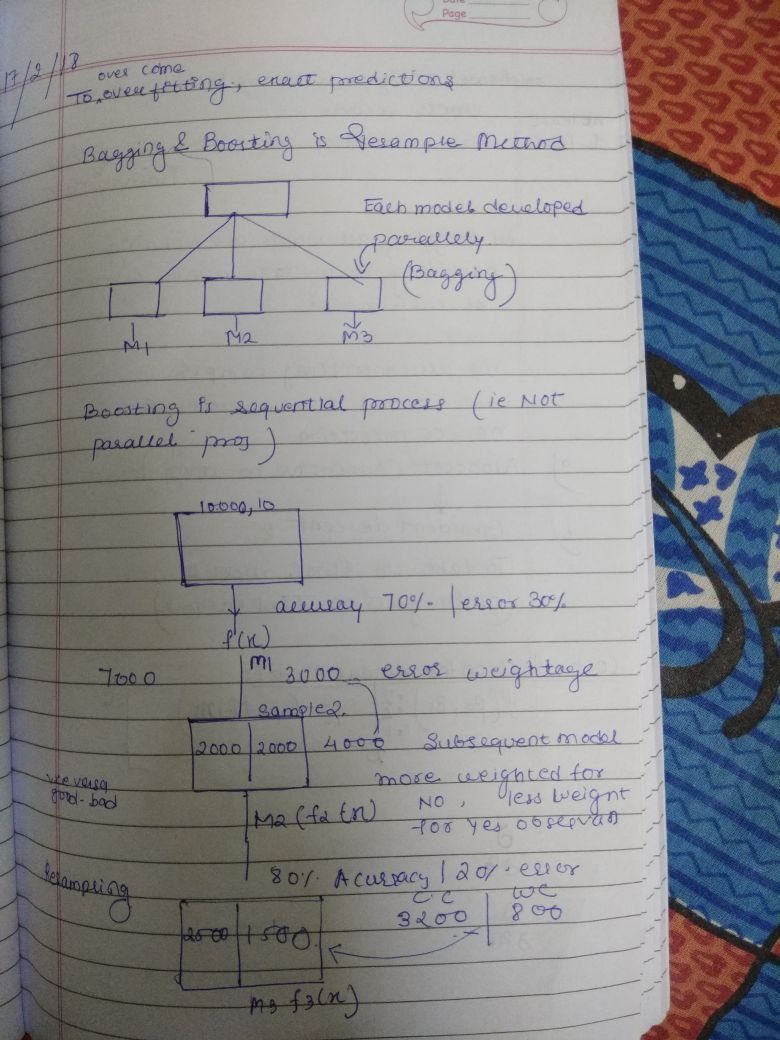 Date
Page
17/2/18
over come
To overfitting, exact predictions
Bagging & Boosting is Resample Method
Each model developed
parallely.
(Bagging)
M1 M2 M3
Boosting is sequential process (ie Not
parallel pros)
10.000, 10
accuray 70% | error 30%
f(x)
M1
7000 3000 error weightage
Sample 2.
2000 2000 4000 Subsequent model
more weighted for
vice versa
good-bad
NO, less weight
M2 (f2(x) for yes observan
80% Acurracy | 20% error
Resampling
C.C WC
3200 800
2500 1500
M3 f3(x)